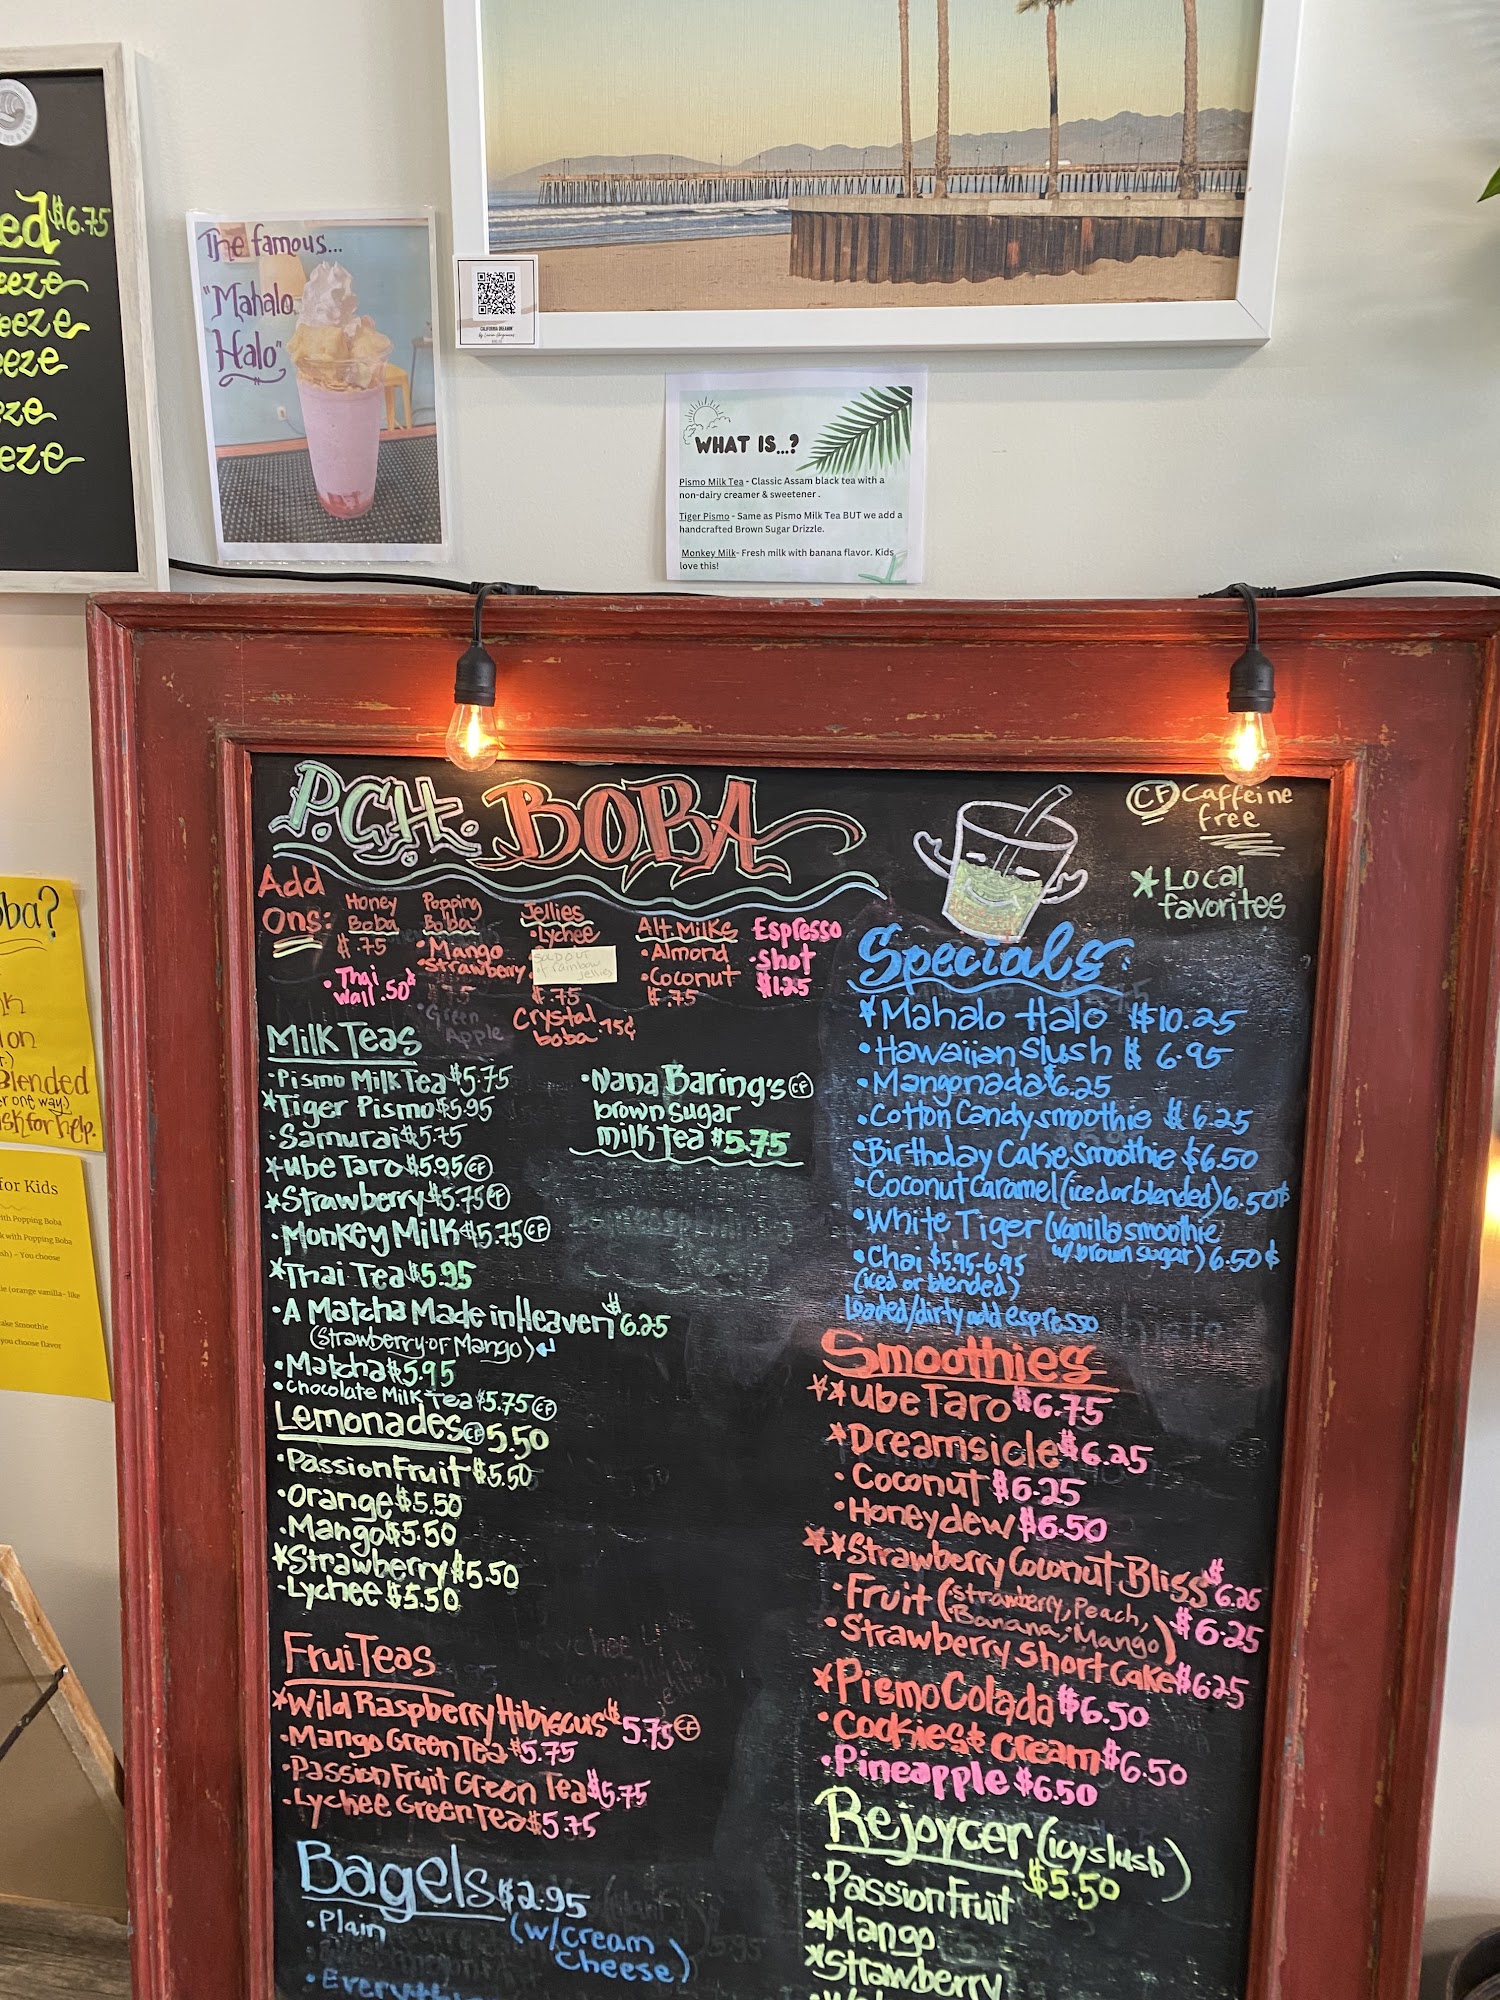 ed $6.75
eeze
eeze
eeze
eze
eze
The famous...
"Mahalo
Halo"
CALIFORNIA DREAMIN'
WHAT IS...?
Pismo Milk Tea - Classic Assam black tea with a
non-dairy creamer & sweetener .
Tiger Pismo - Same as Pismo Milk Tea BUT we add a
handcrafted Brown Sugar Drizzle.
Monkey Milk- Fresh milk with banana flavor. Kids
love this!
oba?
Blended
or one way.)
ask for help.
for Kids
with Popping Boba
k with Popping Boba
sh) - You choose
le (orange vanilla- like
ake Smoothie
you choose flavor
P.C.H. BOBA
CF Caffeine
free
* Local
favorites
Add
Ons:
Honey
Boba
$.75
• Thai
wall .50¢
Popping
Boba
• Mango
• Strawberry
$.75
• Green
Apple
Jellies
• Lychee
SOLD OUT
of rainbow
jellies
$.75
Crystal
boba .75¢
Alt. Milks
• Almond
• Coconut
$.75
Espresso
• Shot
$1.25
Milk Teas
• Pismo Milk Tea $5.75
* Tiger Pismo $5.95
• Samurai $5.75
* Ube Taro $5.95 CF
* Strawberry $5.75 CF
• Monkey Milk $5.75 CF
* Thai Tea $5.95
• A Matcha Made in Heaven $6.25
(Strawberry or Mango)
• Matcha $5.95
• Chocolate Milk Tea $5.75 CF
• Nana Baring's CF
brown sugar
milk tea $5.75
Lemonades CF 5.50
• Passion Fruit $5.50
• Orange $5.50
• Mango $5.50
* Strawberry $5.50
• Lychee $5.50
FruiTeas
* Wild Raspberry Hibiscus $5.75 CF
• Mango Green Tea $5.75
• Passion Fruit Green Tea $5.75
• Lychee Green Tea $5.75
Bagels $2.95
• Plain
(w/cream
cheese)
• Everything
Specials:
* Mahalo Halo $10.25
• Hawaiian Slush $6.95
• Mangonada $6.25
• Cotton Candy smoothie $6.25
• Birthday Cake Smoothie $6.50
• Coconut Caramel (iced or blended) 6.50$
• White Tiger (vanilla smoothie
w/brown sugar) 6.50$
• Chai $5.95-6.95
(iced or blended)
Loaded/dirty add espresso
Smoothies
** Ube Taro $6.75
* Dreamsicle $6.25
• Coconut $6.25
• Honeydew $6.50
** Strawberry Coconut Bliss $6.25
• Fruit (Strawberry, Peach,
Banana, Mango) $6.25
• Strawberry Short Cake $6.25
* Pismo Colada $6.50
• Cookies & Cream $6.50
• Pineapple $6.50
Rejoycer (icy slush)
$5.50
• Passion Fruit
* Mango
* Strawberry